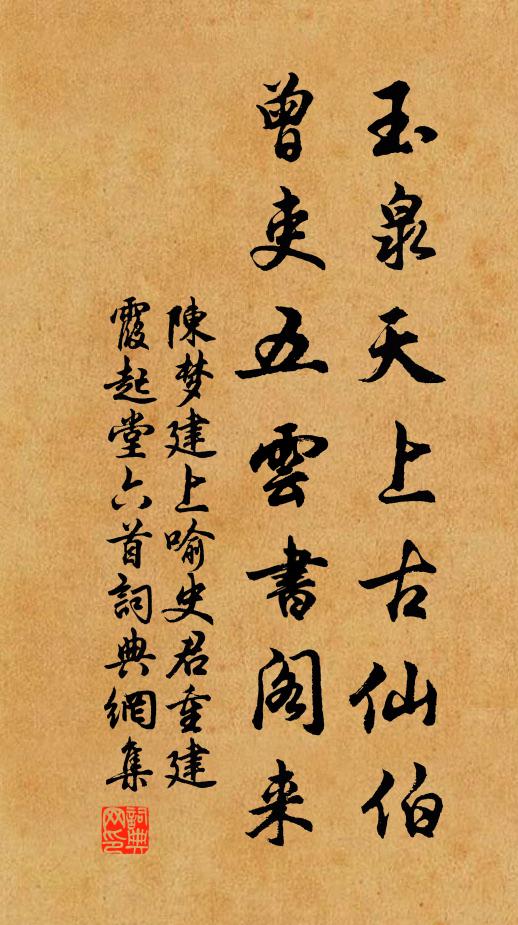 玉泉天上古仙伯
曾吏五雲書閣来
陳梦建上喻史君重建
霞起堂六首詞典網集
詞典网印